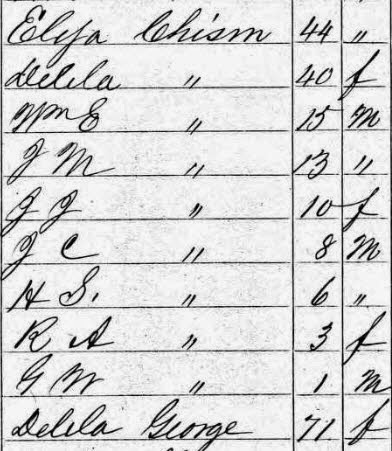 Elija Chism 44 "
Delila " 40 f
Wm E " 15 M
J M " 13 "
J J " 10 f
J C " 8 M
H S. " 6 "
R A " 3 f
G W " 1 M
Delila George 71 f